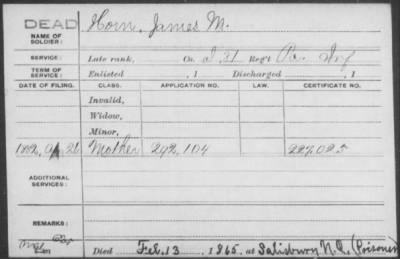 DEAD
NAME OF SOLDIER: Horn, James M.
SERVICE: Late rank, Co. I 31 Reg't Pa. Inf
TERM OF SERVICE: Enlisted , 1 Discharged , 1
DATE OF FILING. CLASS. APPLICATION NO. LAW. CERTIFICATE NO.
Invalid,
Widow,
Minor,
1882, 26 Mother 292,104 227,025
ADDITIONAL SERVICES:
REMARKS:
Died Feb. 13 1865. at Salisbury N.C. (Poisoned